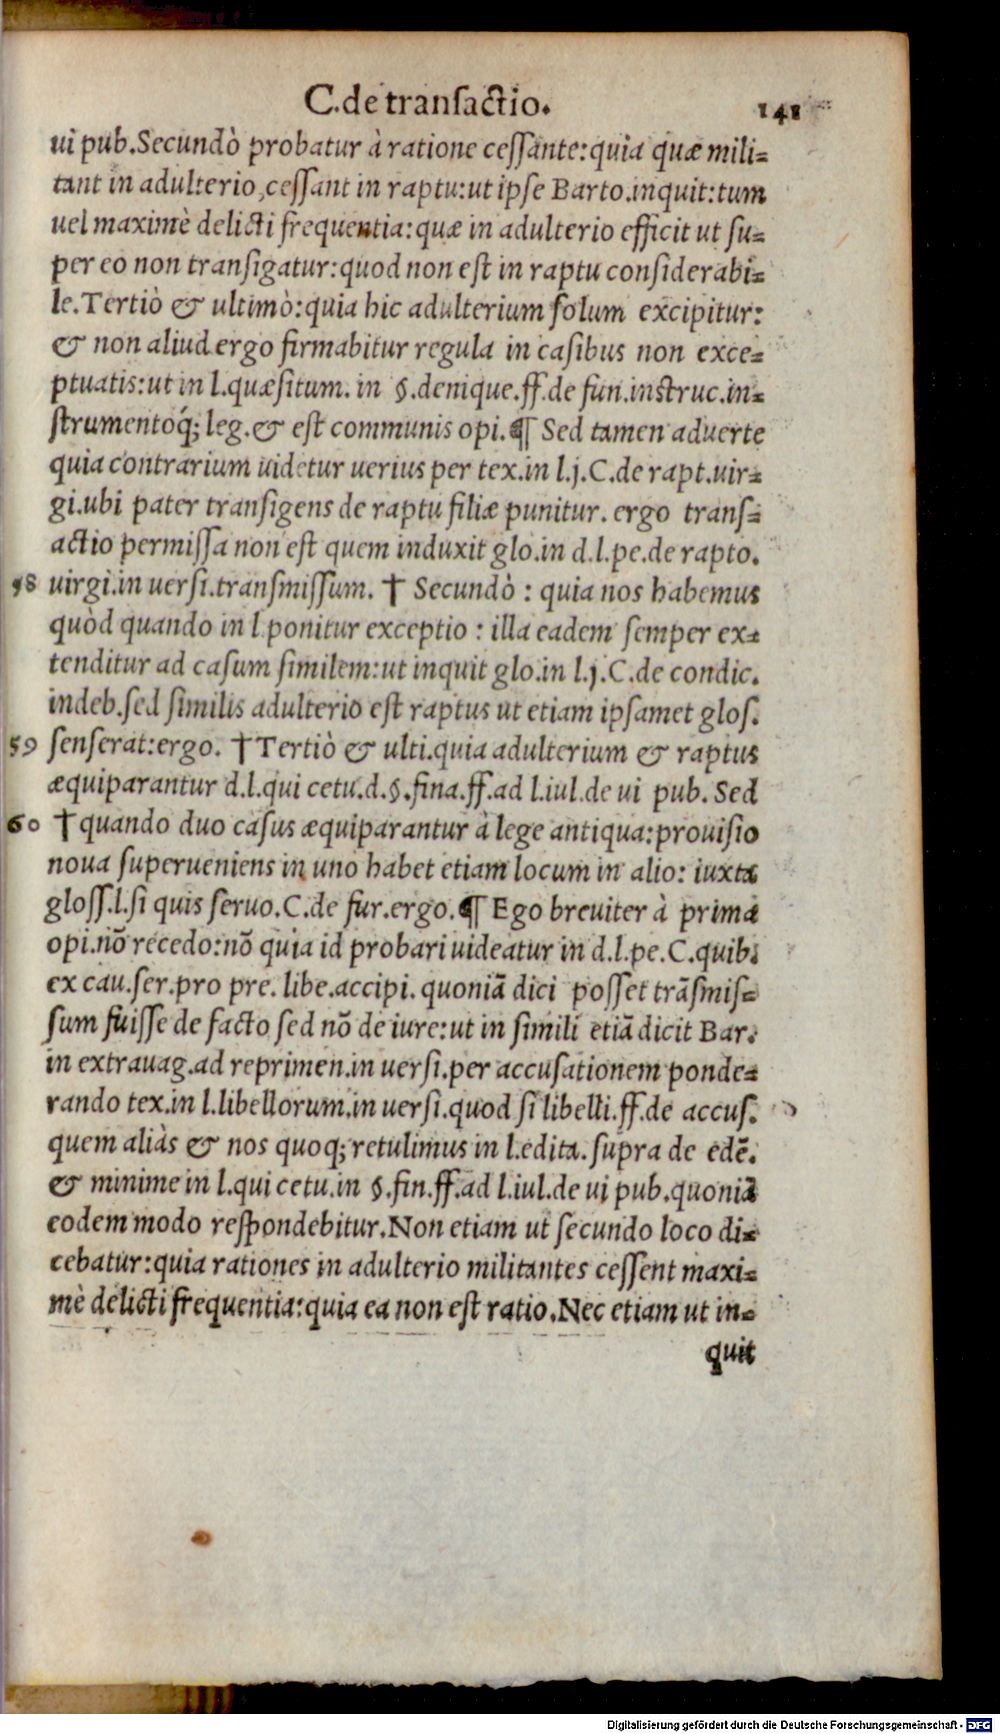 C. de transactio.
141
ui pub. Secundò probatur à ratione cessante: quia quæ mili-
tant in adulterio, cessant in raptu: ut ipse Barto. inquit: tum
uel maximè delicti frequentia: quæ in adulterio efficit ut su-
per eo non transigatur: quod non est in raptu considerabi-
le. Tertiò & ultimò: quia hic adulterium solum excipitur:
& non aliud ergo firmabitur regula in casibus non exce-
ptuatis: ut in l. quæsitum. in §. denique. ff. de fun. instruc. in-
strumentoq́; leg. & est communis opi. ¶ Sed tamen aduerte
quia contrarium uidetur uerius per tex. in l. j. C. de rapt. uir-
gi. ubi pater transigens de raptu filiæ punitur. ergo trans-
actio permissa non est quem induxit glo. in d. l. pe. de rapto.
58 uirgi. in uersi. transmissum. † Secundò : quia nos habemus
quòd quando in l. ponitur exceptio : illa eadem semper ex-
tenditur ad casum similem: ut inquit glo. in l. j. C. de condic.
indeb. sed similis adulterio est raptus ut etiam ipsamet glos.
59 senserat: ergo. † Tertiò & ulti. quia adulterium & raptus
æquiparantur d. l. qui cetu. d. §. fina. ff. ad l. iul. de ui pub. Sed
60 † quando duo casus æquiparantur à lege antiqua: prouisio
noua superueniens in uno habet etiam locum in alio: iuxta
gloss. l. si quis seruo. C. de fur. ergo. ¶ Ego breuiter à prima
opi. nō recedo: nō quia id probari uideatur in d. l. pe. C. quib.
ex cau. ser. pro pre. libe. accipi. quoniā dici posset trāsmis-
sum fuisse de facto sed nō de iure: ut in simili etiā dicit Bar.
in extrauag. ad reprimen. in uersi. per accusationem ponde-
rando tex. in l. libellorum. in uersi. quod si libelli. ff. de accus.
quem aliàs & nos quoq; retulimus in l. edita. supra de edē.
& minime in l. qui cetu. in §. fin. ff. ad l. iul. de ui pub. quoniā
eodem modo respondebitur. Non etiam ut secundo loco di-
cebatur: quia rationes in adulterio militantes cessent maxi-
mè delicti frequentia: quia ea non est ratio. Nec etiam ut in-
quit
Digitalisierung gefördert durch die Deutsche Forschungsgemeinschaft - DFG